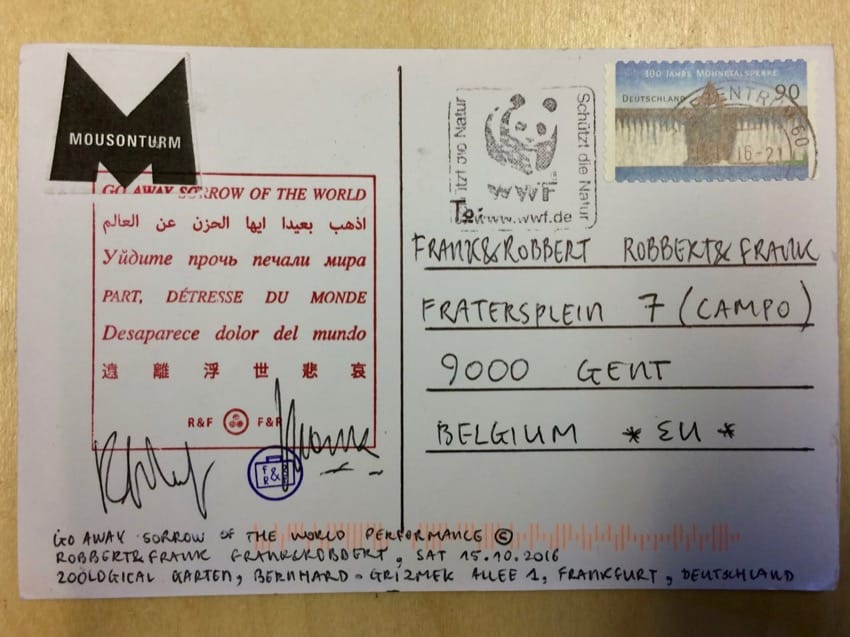 MOUSONTURM
GO AWAY SORROW OF THE WORLD
اذهب بعيدا ايها الحزن عن العالم
Уйдите прочь печали мира
PART, DÉTRESSE DU MONDE
Desaparece dolor del mundo
遠離浮世悲哀
R&F F&R
F&
R&
Schützt die Natur
WWF
Schützt die Natur
www.wwf.de
100 JAHRE MÖHNETALSPERRE
DEUTSCHLAND 90
16-21
To:
FRANK&ROBBERT ROBBERT&FRANK
FRATERSPLEIN 7 (CAMPO)
9000 GENT
BELGIUM * EU *
GO AWAY SORROW OF THE WORLD PERFORMANCE ©
ROBBERT&FRANK FRANK&ROBBERT, SAT 15.10.2016
ZOÖLOGICAL GARTEN, BERNHARD-GRIZMEK ALLEE 1, FRANKFURT, DEUTSCHLAND